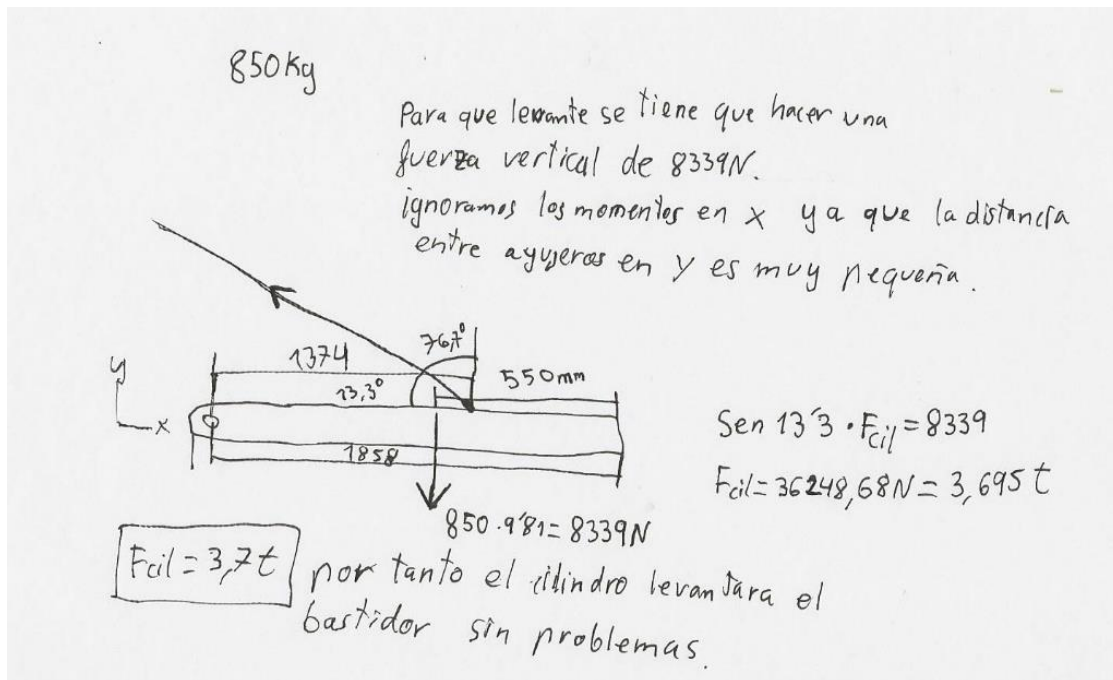 850 Kg
Para que levante se tiene que hacer una
fuerza vertical de 8339N.
ignoramos los momentos en x ya que la distancia
entre agujeros en y es muy pequeña.
76,7°
1374
550mm
13,3°
y
x
1858
Sen 13'3 · Fcil = 8339
Fcil = 36248,68N = 3,695 t
850 · 9'81 = 8339N
Fcil = 3,7t
por tanto el cilindro levantara el
bastidor sin problemas.